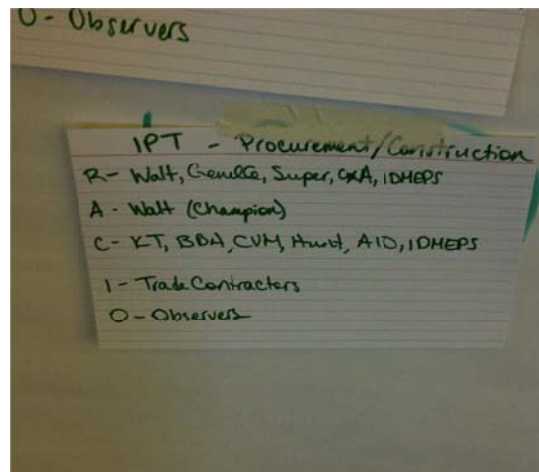 O - Observers
IPT - Procurement/Construction
R - Walt, Super, CxA, IDMEPS
A - Walt (Champion)
C - KT, BBH, CVM, Hurst, AID, IDMEPS
I - Trade Contractors
O - Observers